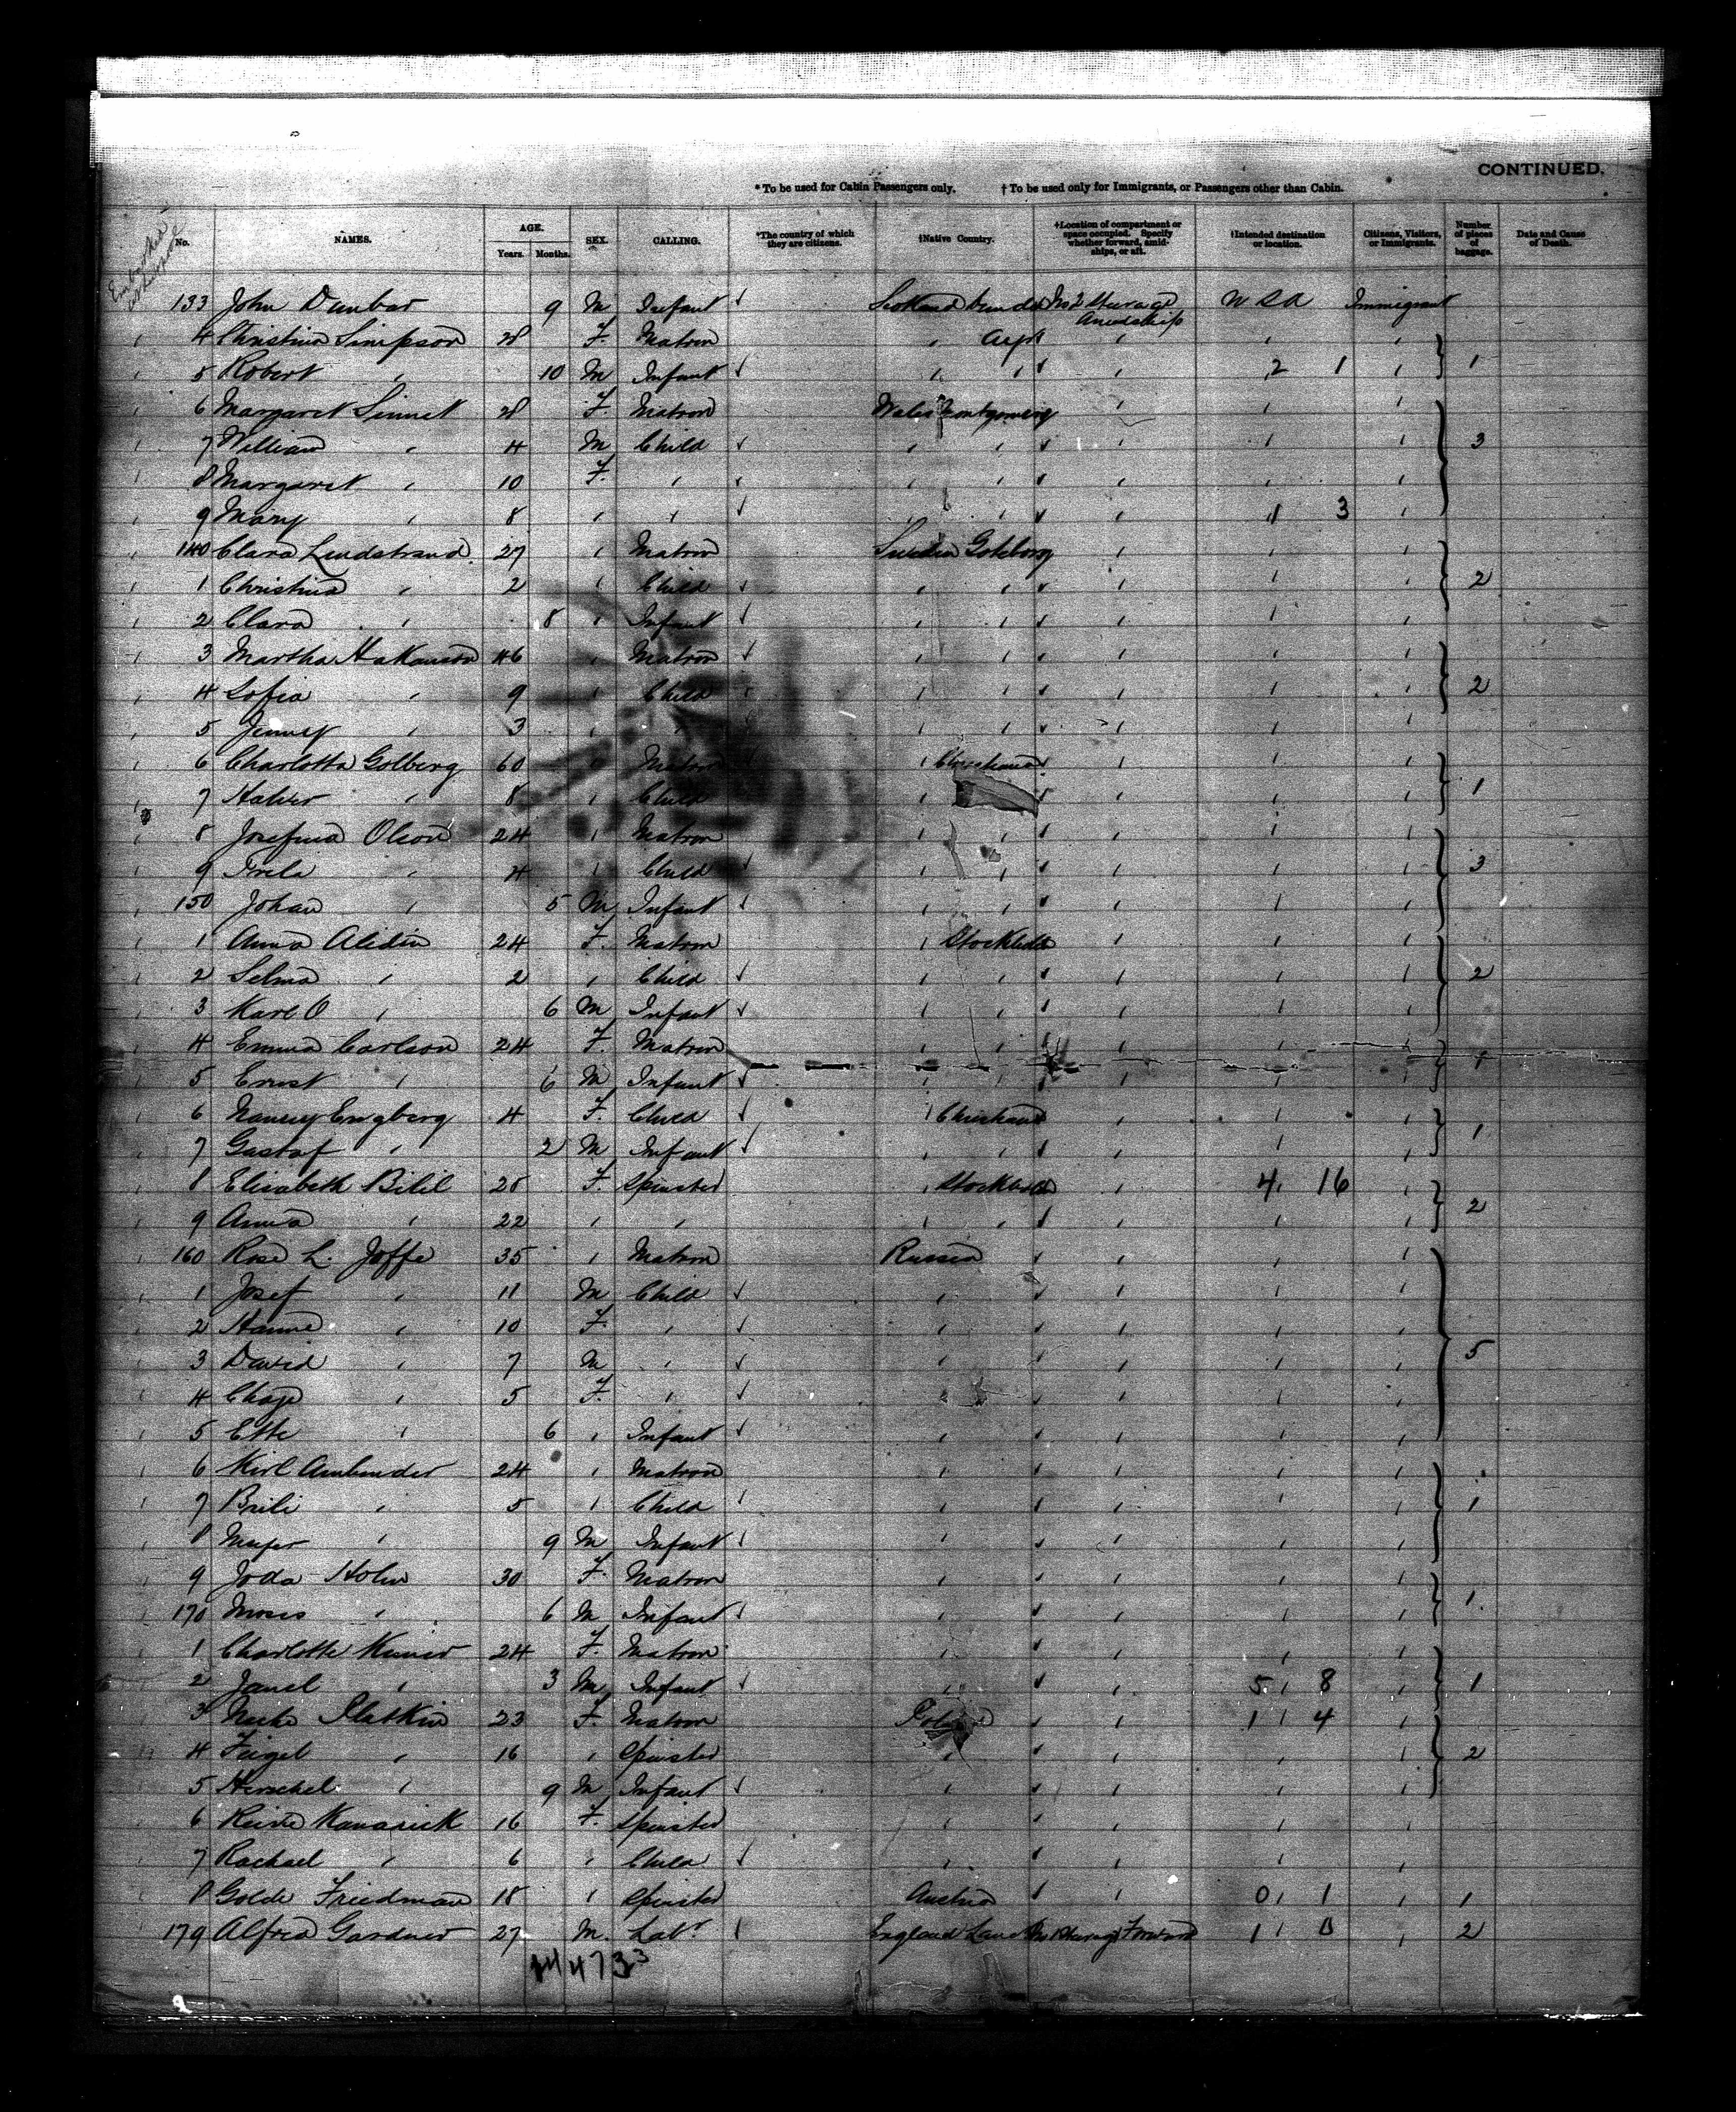 CONTINUED.
* To be used for Cabin Passengers only. † To be used only for Immigrants, or Passengers other than Cabin.
Embarked at Liverpool
No. NAMES. AGE. Years. Months. SEX. CALLING. *The country of which they are citizens. †Native Country. †Location of compartment or space occupied. Specify whether forward, amidships, or aft. †Intended destination or location. Citizens, Visitors, or Immigrants. Number of pieces of baggage. Date and Cause of Death.
133 John Dunbar 9 M Infant Scotland No 2 Steerage Amidship U S A Immigrant
4 Christina Simpson 28 F. Matron Ayr
5 Robert " 10 M Infant 2 1 1
6 Margaret Sinnet 28 F. Matron Wales Montgomery
7 William " 4 M Child 3
8 Margaret " 10 F. "
9 Mary " 8 " " 1 3
140 Clara Lindstrand 27 " Matron Sweden Goteborg
1 Christina " 2 " Child 2
2 Clara " 8 " Infant
3 Martha Hakanson 46 " Matron
4 Sofia " 9 " Child 2
5 Jenny " 3 "
6 Charlotta Golberg 60 " Matron
7 " 8 " Child 1
8 Josefina Olson 24 " Matron
9 " 4 " Child 3
150 Johan " 5 M Infant
1 Anna Alidin 24 F. Matron " Stockholm
2 Selma " 2 " Child 2
3 Karl O " 6 M Infant
4 Emma Carlson 24 F. Matron
5 Ernst " 6 M Infant 1
6 Engberg 4 F. Child
7 Gustaf " 2 M Infant 1
8 Elisabeth Bilil 25 F. Spinster " Stockholm 4 16
9 Anna " 22 " " 2
160 Rose L. Joffe 35 " Matron Russia
1 Josef " 11 M Child
2 Hanne " 10 F. "
3 David " 7 M " 5
4 Chaje " 5 F. "
5 Ette " 6 " Infant
6 Mirl Ambinder 24 " Matron
7 Brili " 5 " Child 1
8 Mejer " 9 M Infant
9 Joda Holm 30 F. Matron
170 Moses " 6 M Infant 1
1 Charlotte 24 F. Matron
2 Janel " 3 M Infant 5 8 1
3 Plotkin 23 F. Matron 1 4
4 Feigel " 16 " Spinster 2
5 Herschel " 9 M Infant
6 16 F. Spinster
7 Rachael " 6 " Child
8 Golde Friedman 18 " Spinster Austria 0 1 1
179 Alfred Gardner 27 M. Labr England No 1 Steerage Forward 1 0 2